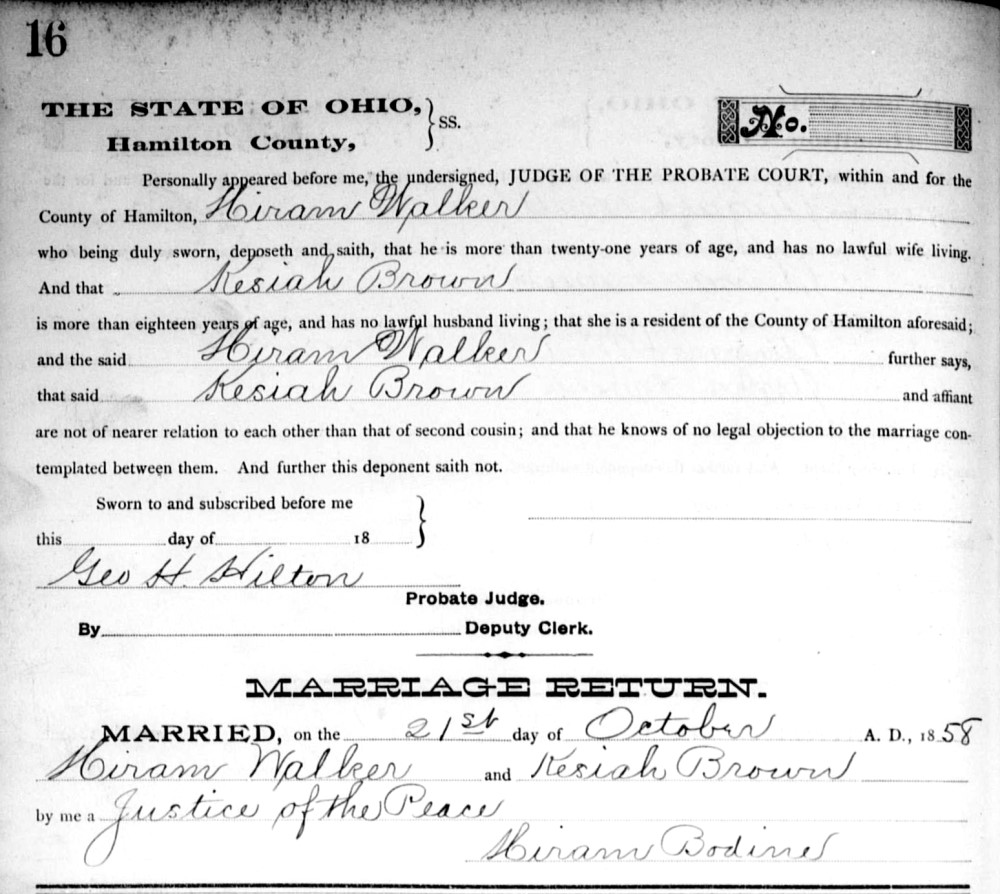 16
THE STATE OF OHIO, } SS.
Hamilton County,
No.
Personally appeared before me, the undersigned, JUDGE OF THE PROBATE COURT, within and for the
County of Hamilton, Hiram Walker
who being duly sworn, deposeth and saith, that he is more than twenty-one years of age, and has no lawful wife living.
And that Kesiah Brown
is more than eighteen years of age, and has no lawful husband living; that she is a resident of the County of Hamilton aforesaid;
and the said Hiram Walker further says,
that said Kesiah Brown and affiant
are not of nearer relation to each other than that of second cousin; and that he knows of no legal objection to the marriage con-
templated between them. And further this deponent saith not.
Sworn to and subscribed before me }
this day of 18
Geo H. Hilton
Probate Judge.
By Deputy Clerk.
MARRIAGE RETURN.
MARRIED, on the 21st day of October A. D., 1858
Hiram Walker and Kesiah Brown
by me a Justice of the Peace
Hiram Bodine